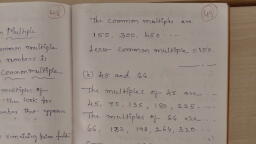 48
Multiple
common multiple
numbers is
Common multiple.
multiples of
the look for
number that appears
49
The common multiples are
150, 300, 450 ...
Least common multiple = 150.
(k) 45 and 66
The multiples of 45 are ...
45, 90, 135, 180, 225...
The multiples of 66 are ...
66, 132, 198, 264, 330...